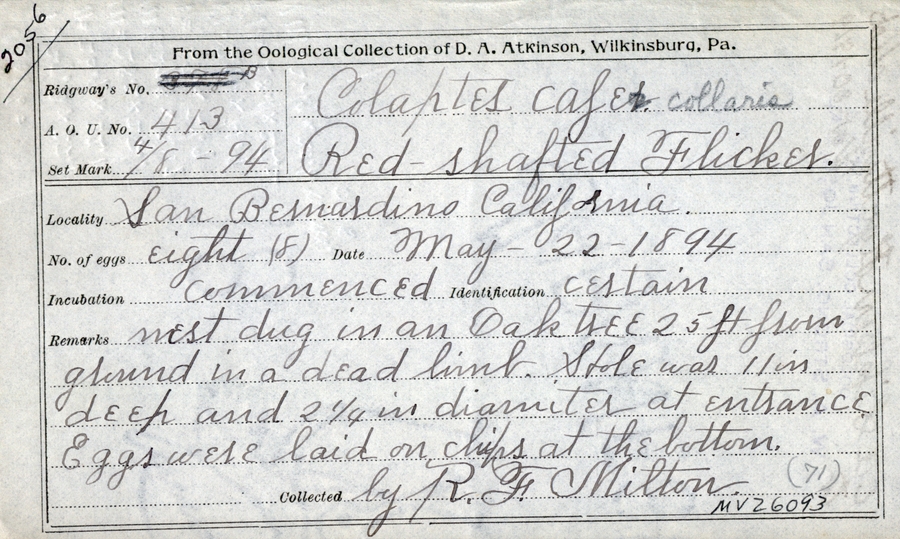 2056
From the Oological Collection of D. A. Atkinson, Wilkinsburg, Pa.
Ridgway's No.
Colaptes cafer collaris
A. O. U. No. 413
Set Mark 4/8 - 94
Red-shafted Flicker.
Locality San Bernardino California.
No. of eggs eight (8) Date May - 22 - 1894
Incubation commenced Identification certain
Remarks nest dug in an Oak tree 25 ft from
ground in a dead limb. Hole was 11 in
deep and 2 1/4 in diamiter at entrance
Eggs were laid on chips at the bottom.
Collected by R. F. Milton. (71)
MVZ6093